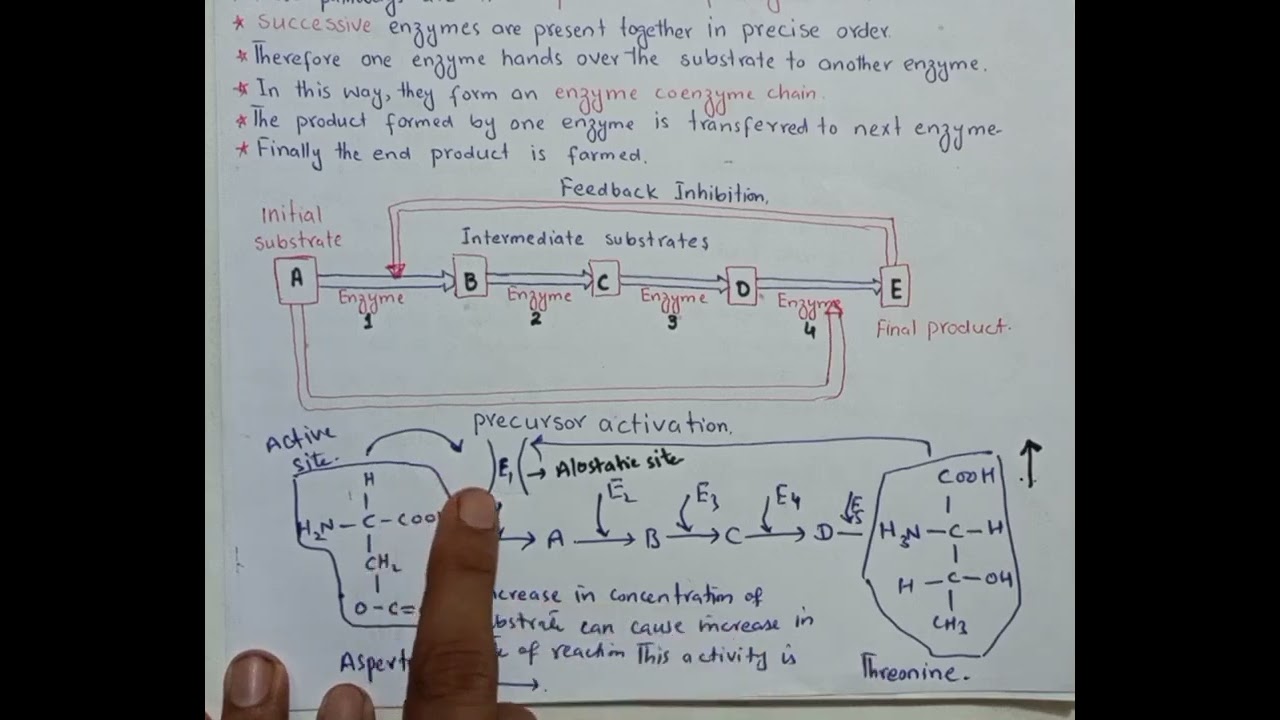 * Successive enzymes are present together in precise order.
* Therefore one enzyme hands over the substrate to another enzyme.
* In this way, they form an enzyme coenzyme chain.
* The product formed by one enzyme is transferred to next enzyme-
* Finally the end product is farmed.
Feedback Inhibition.
Initial
substrate
Intermediate substrates
A
B
C
D
E
Enzyme
1
Enzyme
2
Enzyme
3
Enzyme
4
Final product.
precursor activation.
Active
site.
E1
→ Alostatic site
E2
E3
E4
E5
→ A → B → C → D —
H
H2N – C – COO
CH2
O – C =
COOH
H3N – C – H
H – C – OH
CH3
crease in concentration of
bstrate can cause increase in
of reaction This activity is
→.
Threonine.